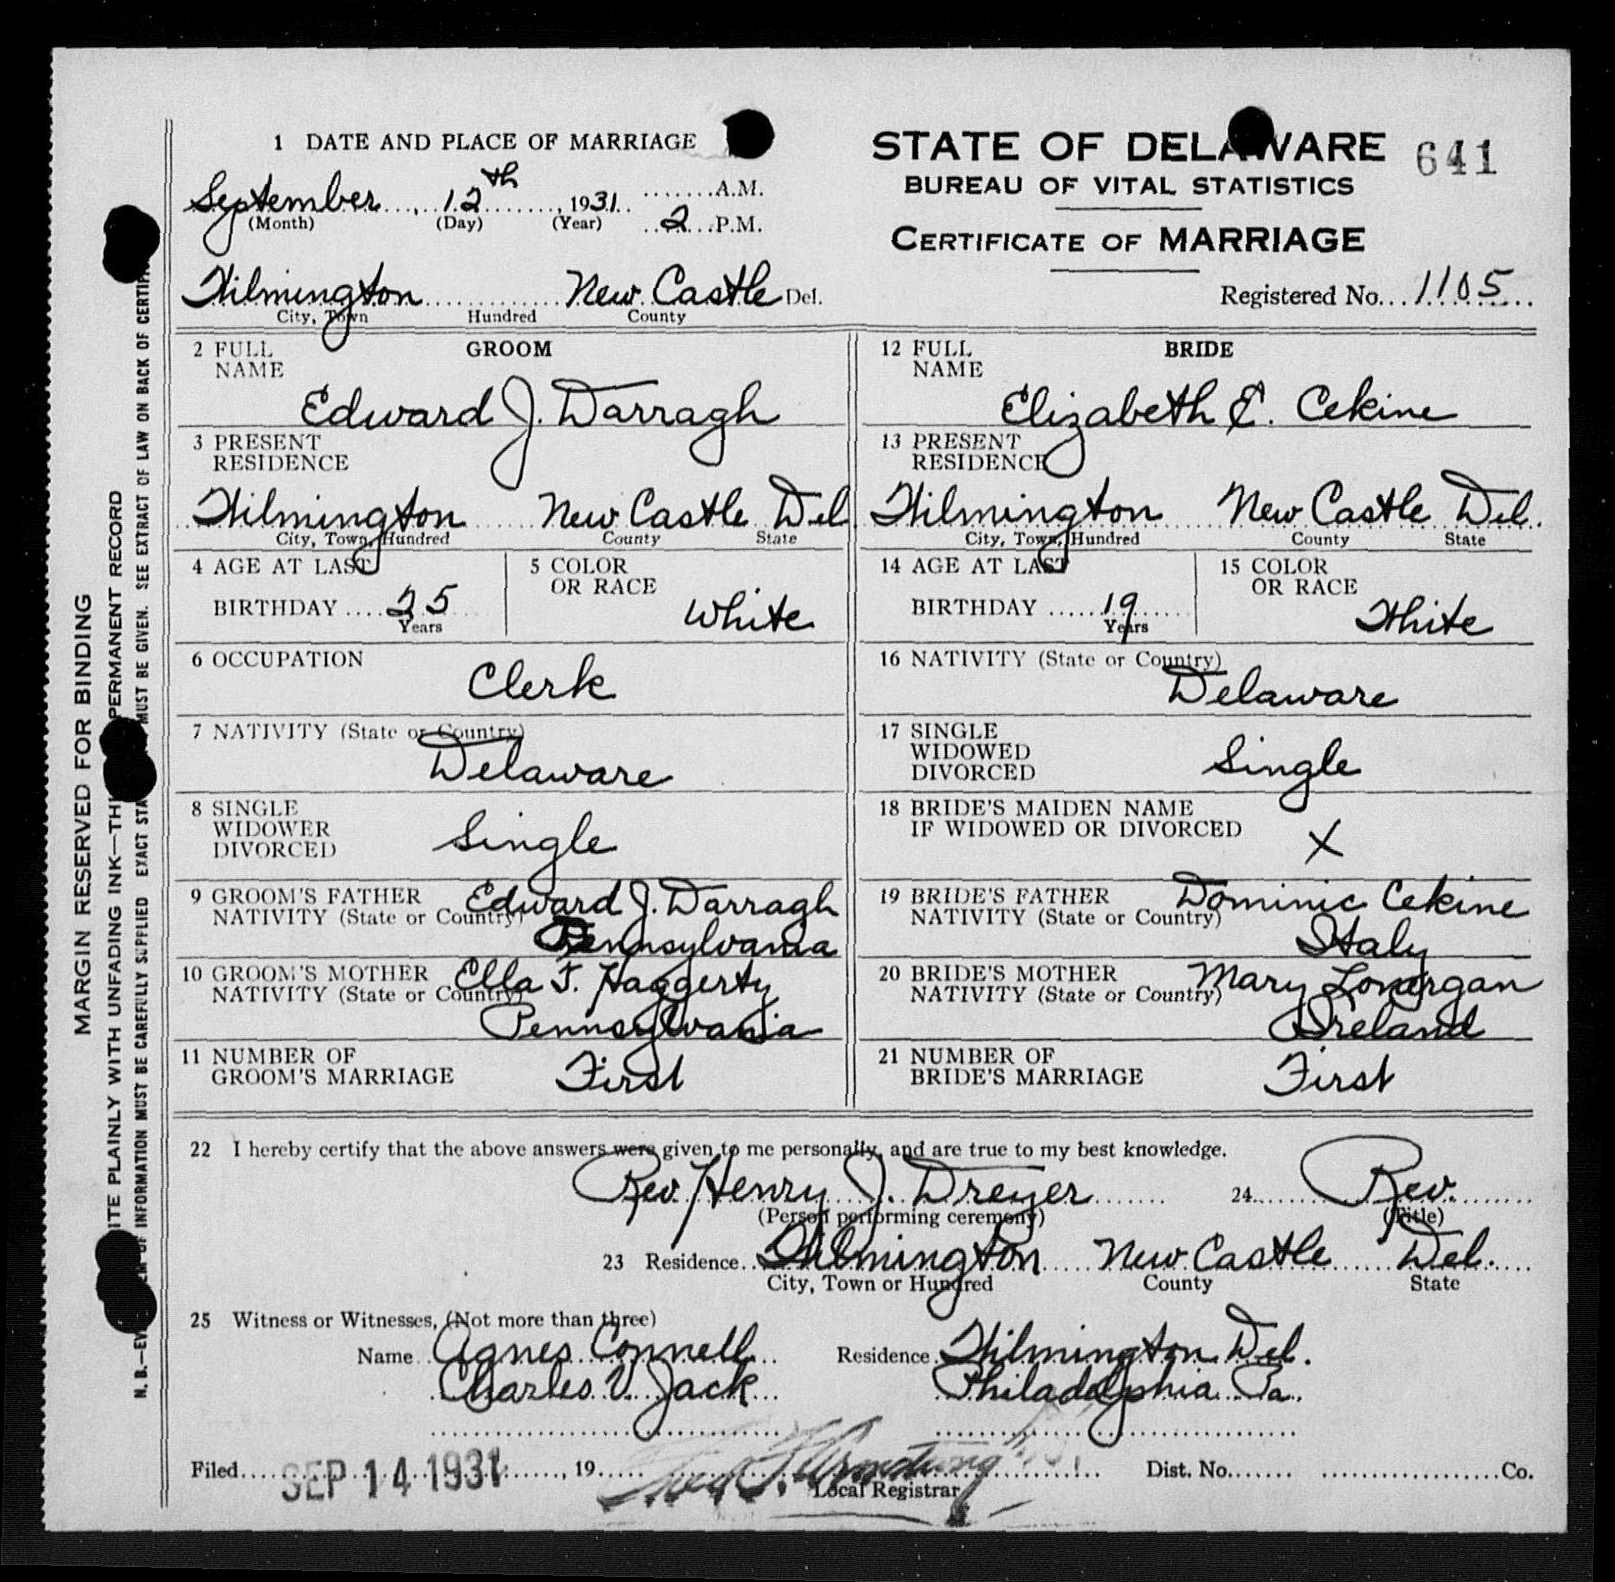 1 DATE AND PLACE OF MARRIAGE
September, 12th, 1931 ........A.M.
(Month) (Day) (Year) 2 P.M.
Wilmington New Castle Del.
City, Town Hundred County
STATE OF DELAWARE 641
BUREAU OF VITAL STATISTICS
CERTIFICATE OF MARRIAGE
Registered No. 1105
2 FULL NAME GROOM
Edward J. Darragh
3 PRESENT RESIDENCE
Wilmington New Castle Del
City, Town, Hundred County State
4 AGE AT LAST BIRTHDAY 25
Years
5 COLOR OR RACE White
6 OCCUPATION
Clerk
7 NATIVITY (State or Country)
Delaware
8 SINGLE
WIDOWER Single
DIVORCED
9 GROOM'S FATHER Edward J. Darragh
NATIVITY (State or Country)
Pennsylvania
10 GROOM'S MOTHER Ella F. Haggerty
NATIVITY (State or Country)
Pennsylvania
11 NUMBER OF
GROOM'S MARRIAGE First
12 FULL NAME BRIDE
Elizabeth E. Cekine
13 PRESENT RESIDENCE
Wilmington New Castle Del.
City, Town, Hundred County State
14 AGE AT LAST BIRTHDAY 19
Years
15 COLOR OR RACE White
16 NATIVITY (State or Country)
Delaware
17 SINGLE
WIDOWED Single
DIVORCED
18 BRIDE'S MAIDEN NAME
IF WIDOWED OR DIVORCED X
19 BRIDE'S FATHER Dominic Cekine
NATIVITY (State or Country)
Italy
20 BRIDE'S MOTHER Mary Lonergan
NATIVITY (State or Country)
Ireland
21 NUMBER OF
BRIDE'S MARRIAGE First
22 I hereby certify that the above answers were given to me personally, and are true to my best knowledge.
Rev. Henry J. Dreyer 24 Rev.
(Person performing ceremony) (Title)
23 Residence Wilmington New Castle Del.
City, Town or Hundred County State
25 Witness or Witnesses, (Not more than three)
Name Agnes Connell Residence Wilmington Del.
Charles V. Jack Philadelphia Pa.
Filed SEP 14 1931, 19 Dist. No. Co.
Local Registrar
MARGIN RESERVED FOR BINDING
ITE PLAINLY WITH UNFADING INK—THI PERMANENT RECORD
N. B.—EV EM OF INFORMATION MUST BE CAREFULLY SUPPLIED EXACT STA MUST BE GIVEN. SEE EXTRACT OF LAW ON BACK OF CERTIFI